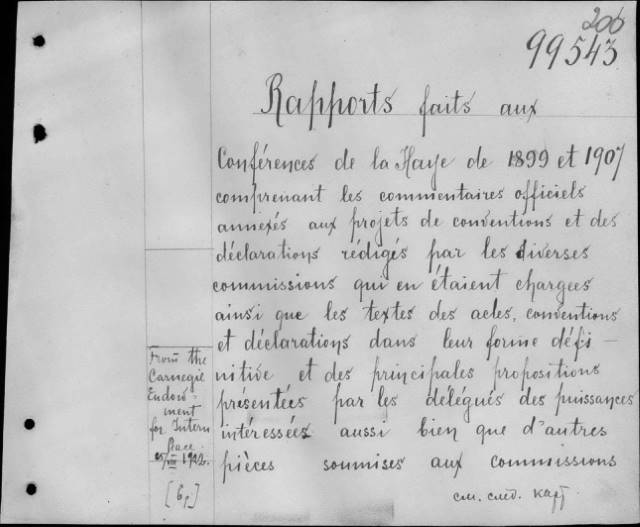 206
99543
Rapports faits aux
Conférences de la Haye de 1899 et 1907
comprenant les commentaires officiels
annexés aux projets de conventions et des
déclarations rédigés par les diverses
commissions qui en étaient chargees
ainsi que les textes des actes, conventions
et déclarations dans leur forme défi-
nitive et des principales propositions
présentées par les délégués des puissances
intéressées aussi bien que d'autres
pièces soumises aux commissions
From the
Carnegie
Endow-
ment
for Intern
Peace
25/VII 1922.
[6р]
см. след. карт